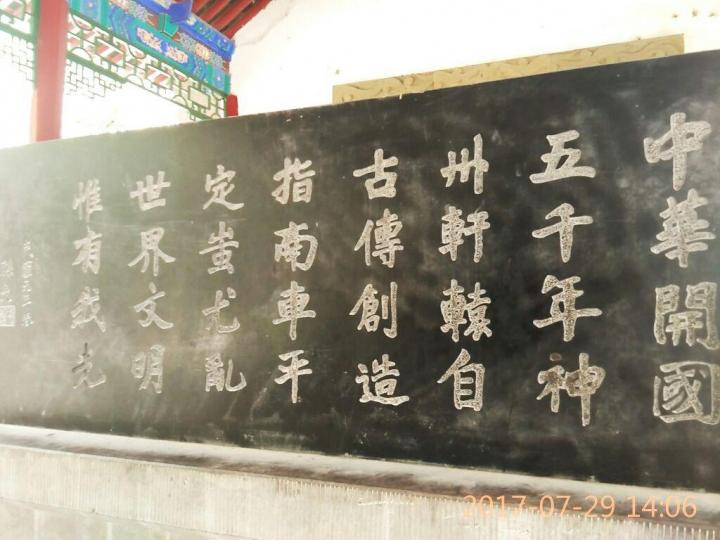 中華開國
五千年神
州軒轅自
古傳創造
指南車平
定蚩尤亂
世界文明
惟有我先
2017-07-29 14:06